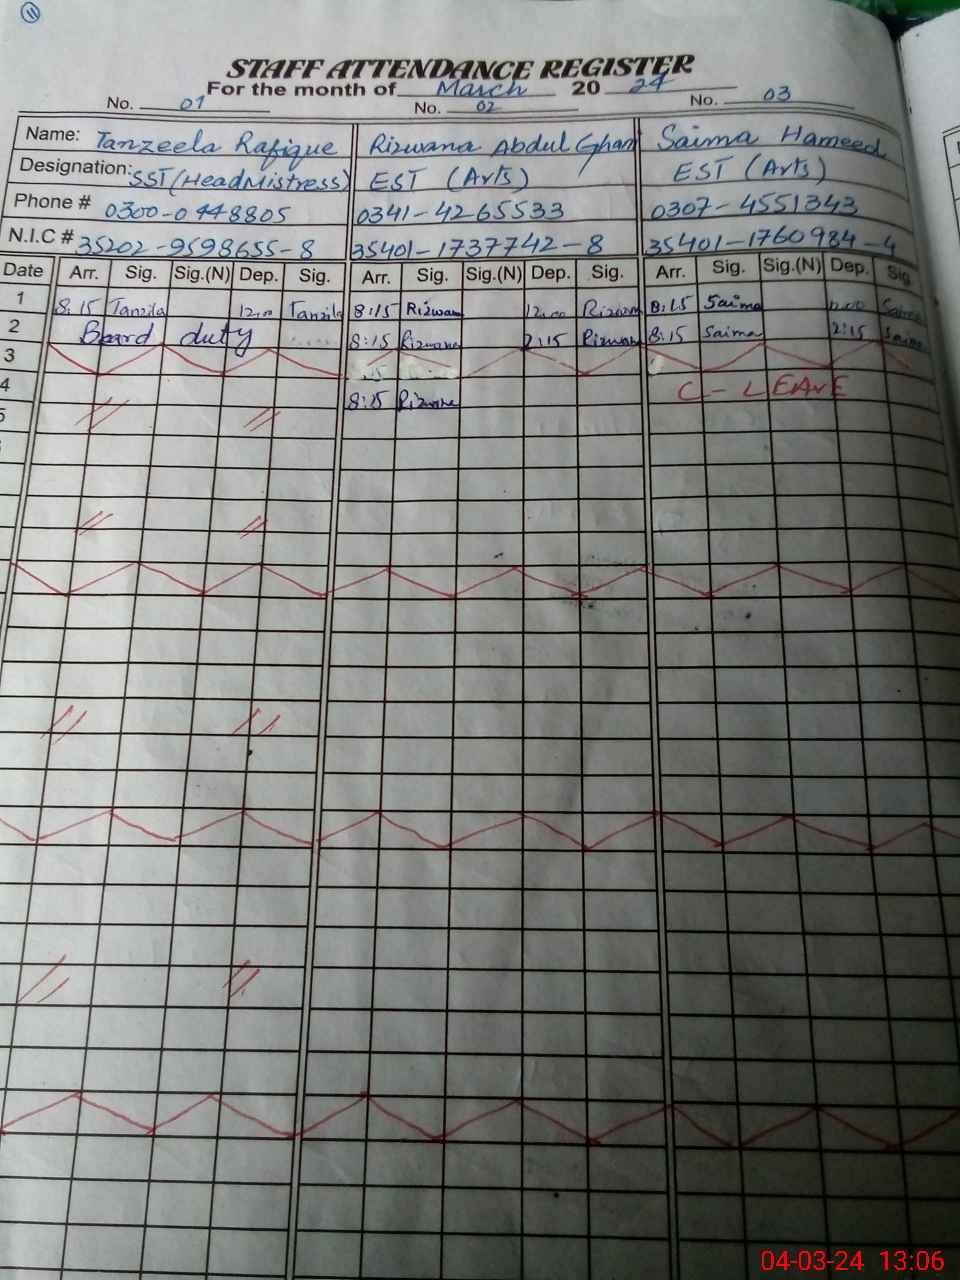 11
STAFF ATTENDANCE REGISTER
For the month of March 20 24
No. 01 No. 02 No. 03
Name: Tanzeela Rafique Rizwana Abdul Ghani Saima Hameed
Designation: SST (HeadMistress) EST (Arts) EST (Arts)
Phone # 0300-0448805 0341-4265533 0307-4551343
N.I.C # 35202-9598655-8 35401-1737742-8 35401-1760984-4
Date Arr. Sig. Sig.(N) Dep. Sig. Arr. Sig. Sig.(N) Dep. Sig. Arr. Sig. Sig.(N) Dep. Sig
1 8:15 Tanzila 12:00 Tanzila 8:15 Rizwana 12:00 Rizwana 8:15 Saima 12:00 Saima
2 Board duty 8:15 Rizwana 2:15 Rizwana 8:15 Saima 2:15 Saima
3
4 8:15 Rizwana C-LEAVE
5
04-03-24 13:06